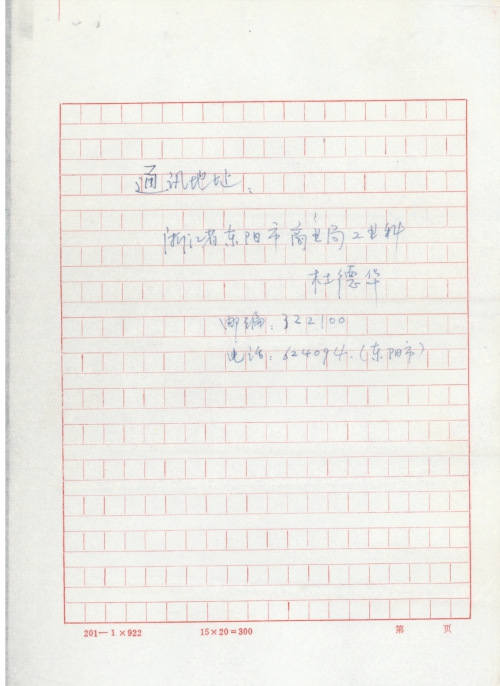 通讯地址：
浙江省东阳市商业局工业科
杜德华
邮编：322100
电话：624094.（东阳市）
201—1×922 15×20=300 第 页